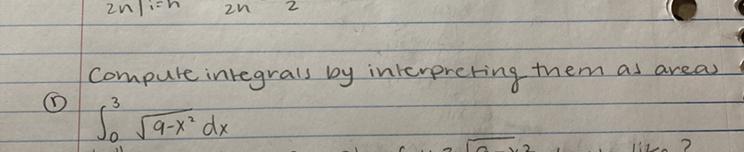 2n | i=n 2n 2
Compute integrals by interpreting them as areas
① ∫₀³ √9-x² dx
like?